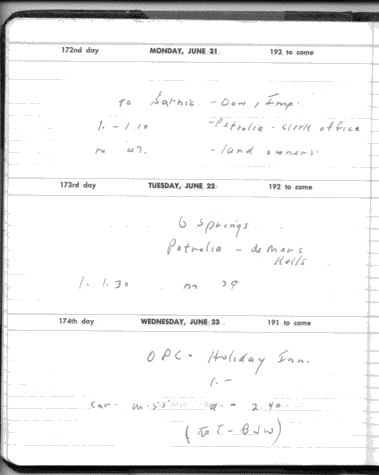 172nd day MONDAY, JUNE 21 193 to come
To Sarnia - Dow, Imp.
1. - 1.10 - Petrolia - clerk office
m 47. - land owners
173rd day TUESDAY, JUNE 22 192 to come
6 Springs
Petrolia - de Mars
Halls
1. 1.30 m 79
174th day WEDNESDAY, JUNE 23 191 to come
OPC - Holiday Inn.
1. -
car - - 2.40
(To T - BJW)